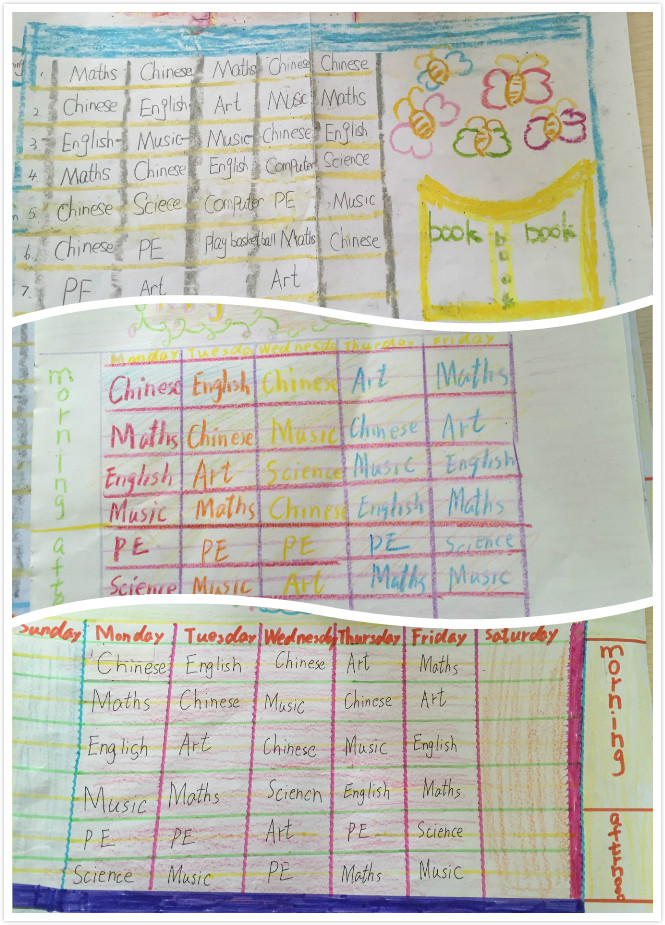 1. Maths Chinese Maths Chinese Chinese
2 Chinese English Art Music Maths
3. English Music Music Chinese English
4. Maths Chinese English Computer Science
5. Chinese Sciece Computer PE Music
6. Chinese PE Play basketball Maths Chinese
7. PE Art Art
book book
book
Monday Tuesday Wednesda Thursday Friday
morning
Chinese English Chinese Art Maths
Maths Chinese Music Chinese Art
English Art Science Music English
Music Maths Chinese English Maths
PE PE PE PE Science
Science Music Art Maths Music
Sunday Monday Tuesday Wednesday Thursday Friday Saturday
Chinese English Chinese Art Maths
Maths Chinese Music Chinese Art
English Art Chinese Music English
Music Maths Sciench English Maths
PE PE Art PE Science
Science Music PE Maths Music
morning
afternoon